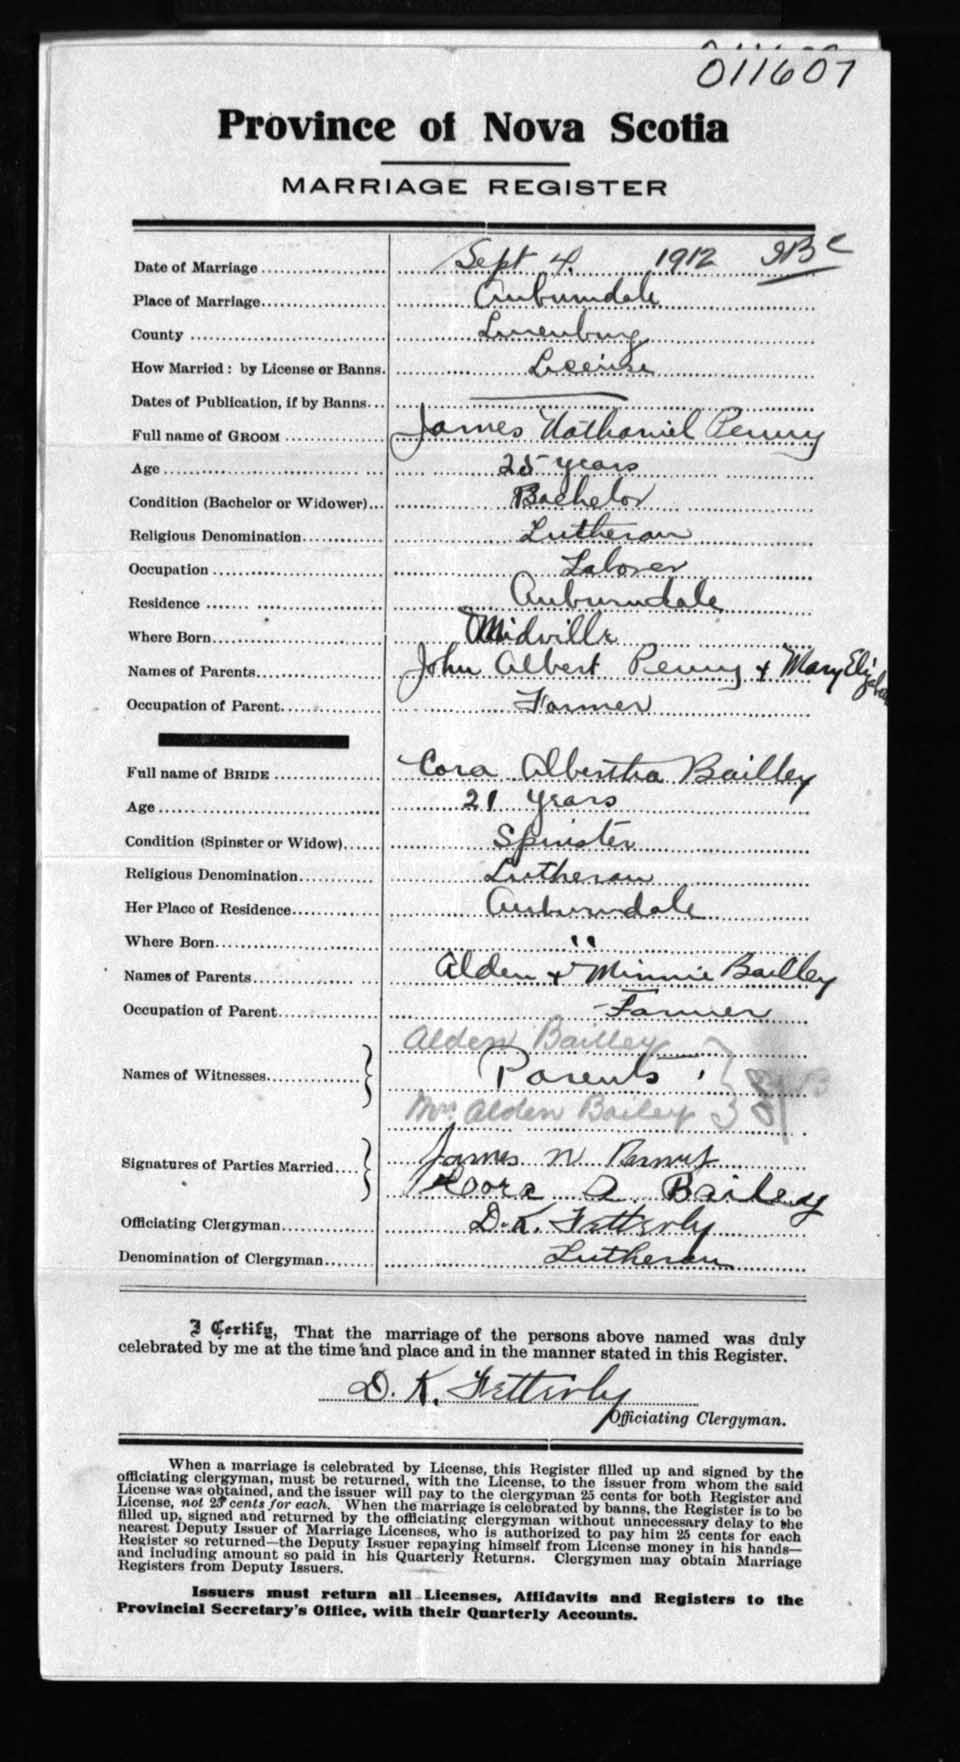 011607
Province of Nova Scotia
MARRIAGE REGISTER
Date of Marriage Sept 4. 1912
Place of Marriage Auburndale
County Lunenburg
How Married: by License or Banns. License
Dates of Publication, if by Banns
Full name of GROOM James Nathaniel Penny
Age 25 years
Condition (Bachelor or Widower) Bachelor
Religious Denomination Lutheran
Occupation Laborer
Residence Auburndale
Where Born Midville
Names of Parents John Albert Penny + Mary Elizabeth
Occupation of Parent Farmer
Full name of BRIDE Cora Albertha Bailley
Age 21 years
Condition (Spinster or Widow) Spinster
Religious Denomination Lutheran
Her Place of Residence Auburndale
Where Born "
Names of Parents Alden + Minnie Bailley
Occupation of Parent Farmer
Alden Bailley
Names of Witnesses Parents
Mrs. Alden Bailey
Signatures of Parties Married James N
Cora A. Bailey
Officiating Clergyman D. K. Fetterly
Denomination of Clergyman Lutheran
I Certify, That the marriage of the persons above named was duly
celebrated by me at the time and place and in the manner stated in this Register.
D. K. Fetterly
Officiating Clergyman.
When a marriage is celebrated by License, this Register filled up and signed by the
officiating clergyman, must be returned, with the License, to the issuer from whom the said
License was obtained, and the issuer will pay to the clergyman 25 cents for both Register and
License, not 25 cents for each. When the marriage is celebrated by banns, the Register is to be
filled up, signed and returned by the officiating clergyman without unnecessary delay to the
nearest Deputy Issuer of Marriage Licenses, who is authorized to pay him 25 cents for each
Register so returned—the Deputy Issuer repaying himself from License money in his hands—
and including amount so paid in his Quarterly Returns. Clergymen may obtain Marriage
Registers from Deputy Issuers.
Issuers must return all Licenses, Affidavits and Registers to the
Provincial Secretary's Office, with their Quarterly Accounts.